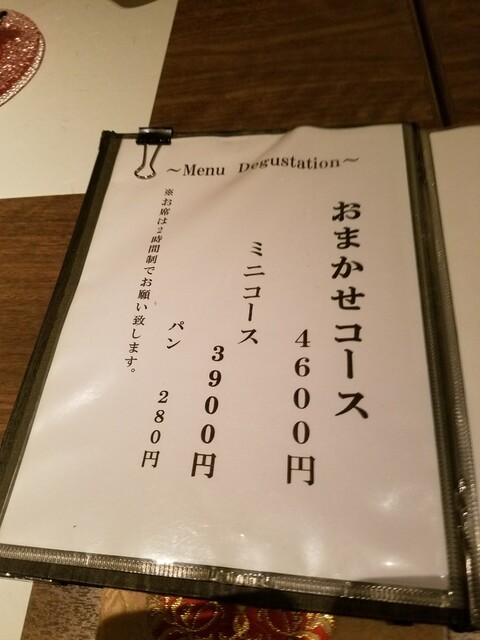 ～Menu Degustation～
おまかせコース
4600円
ミニコース
3900円
パン 280円
※お席は2時間制でお願い致します。